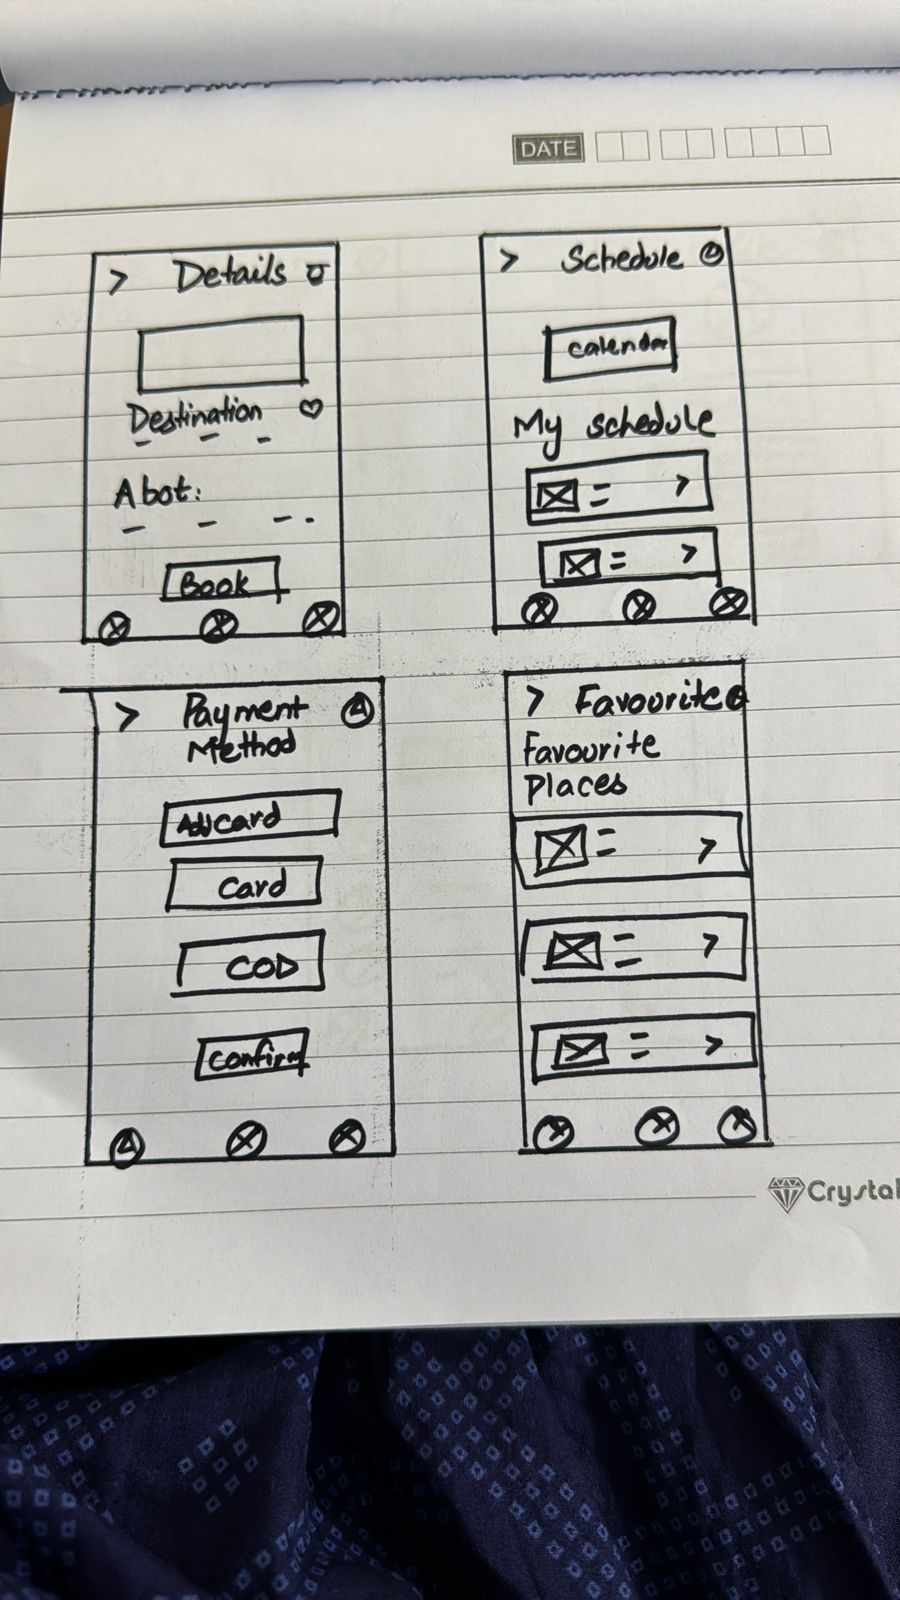 DATE
> Details
Destination
Abot:
Book
> Schedule
calendar
My schedule
=  >
=  >
> Payment
Method
Add card
card
COD
Confirm
> Favourite
Favourite
Places
=  >
=  >
=  >
Crystal